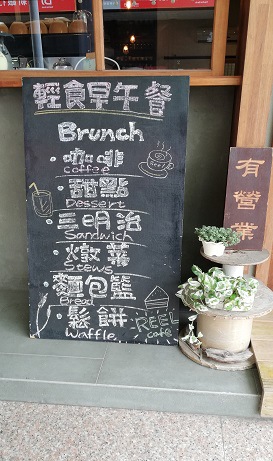 輕食早午餐
Brunch
·咖啡
Coffee
·甜點
Dessert
·三明治
Sandwich
·燉菜
Stews
·麵包籃
Bread
·鬆餅
Waffle
REEL
café
有營業